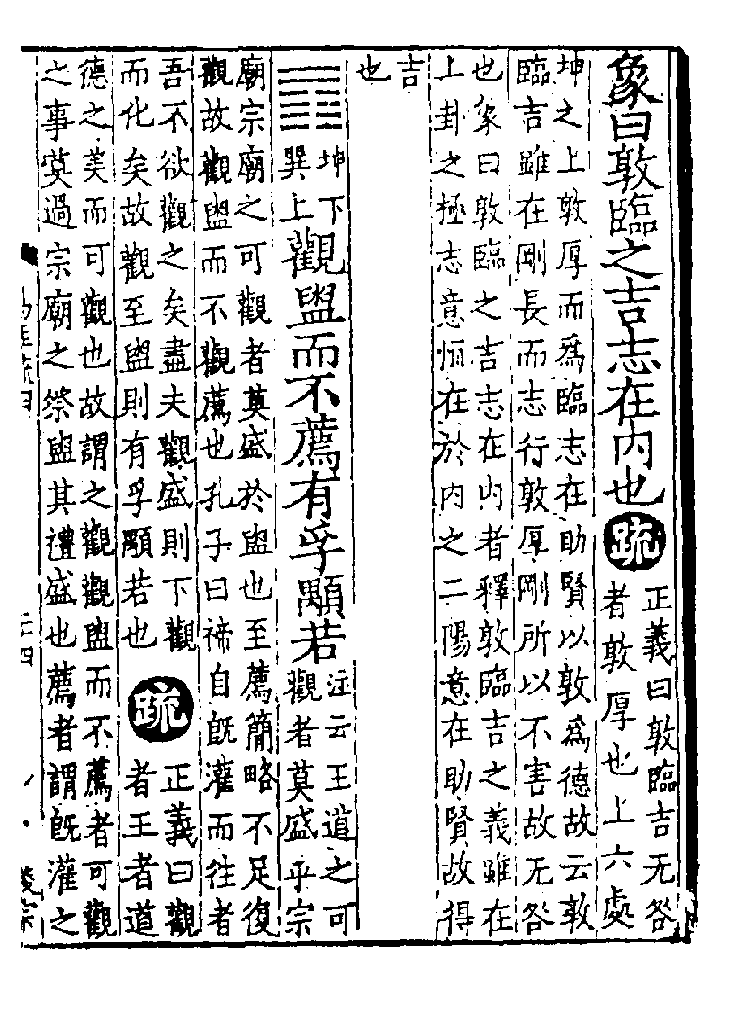 象曰敦臨之吉志在内也疏
正義曰敦臨吉无咎
者敦厚也上六處
坤之上敦厚而為臨志在助賢以敦為德故云敦
臨吉雖在剛長而志行敦厚剛所以不害故无咎
也象曰敦臨之吉志在内者釋敦臨吉之義雖在
上卦之極志意恒在於内之二陽意在助賢故得
吉
也
䷓
坤下
巽上
觀盥而不薦有孚顒若
注云王道之可
觀者莫盛乎宗
廟宗廟之可觀者莫盛於盥也至薦簡略不足復
觀故觀盥而不觀薦也孔子曰禘自既灌而往者
吾不欲觀之矣盡夫觀盛則下觀
而化矣故觀至盥則有孚顒若也
疏
正義曰觀
者王者道
德之美而可觀也故謂之觀觀盥而不薦者可觀
之事莫過宗廟之祭盥其禮盛也薦者謂既灌之